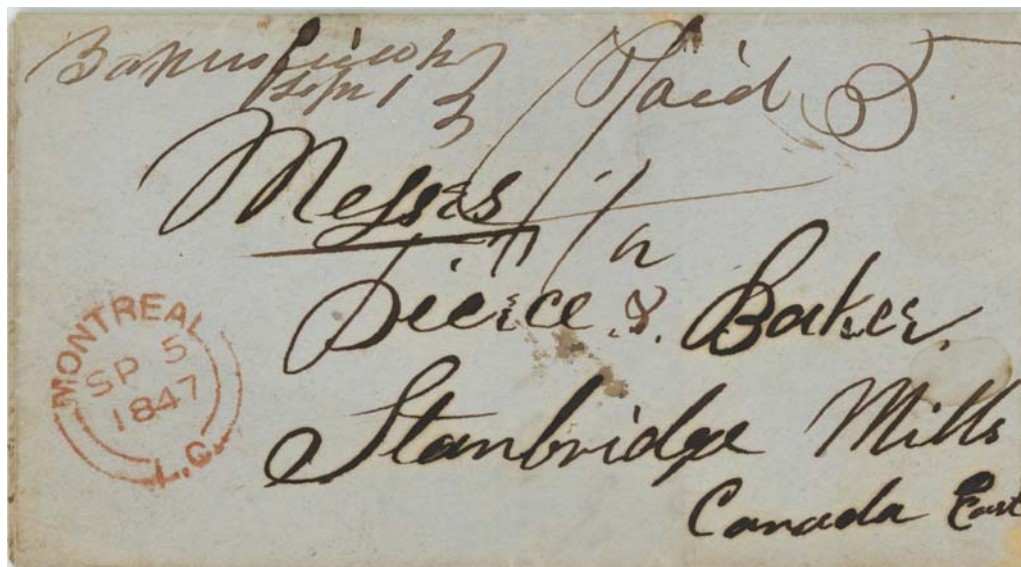 Paid 5
Sep 1
Messrs
Pierce & Baker.
Stanbridge Mills
Canada East
MONTREAL
SP 5
1847
L.C.